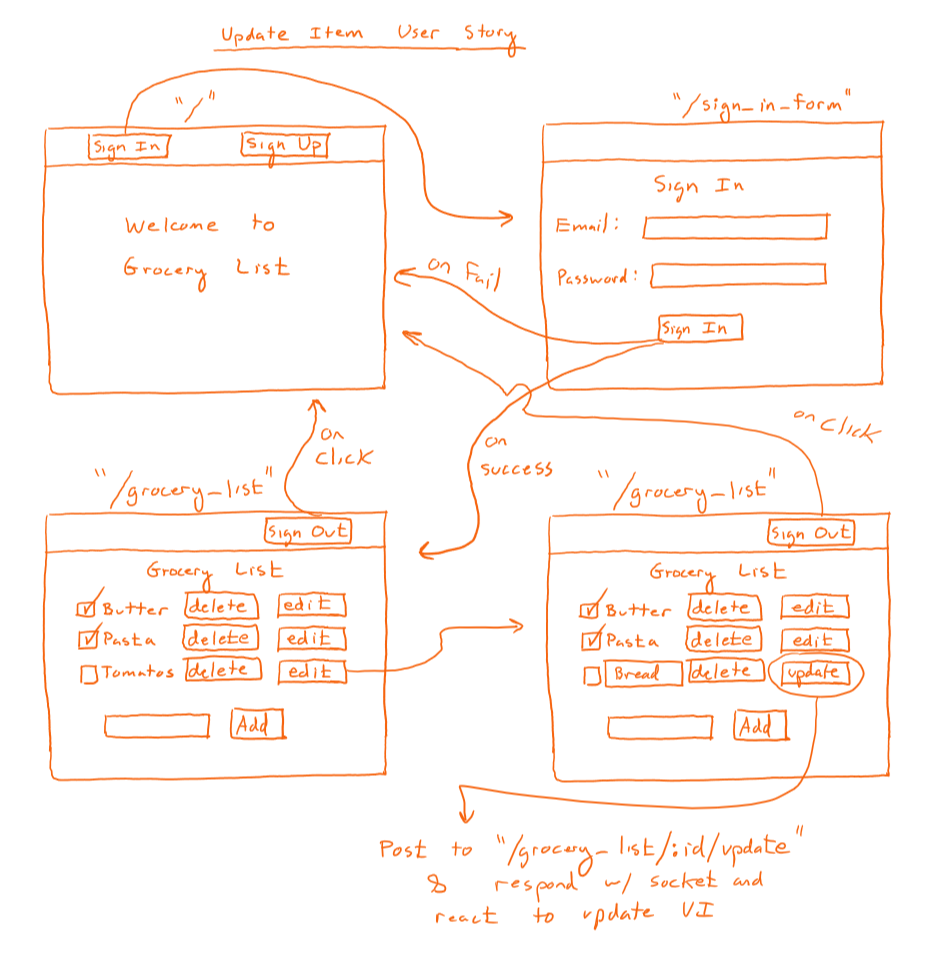 Update Item User Story
"/"
Sign In Sign Up
Welcome to
Grocery List
"/sign_in_form"
Sign In
Email:
Password:
Sign In
on Fail
on success
on click
on click
"/grocery_list"
Sign Out
Grocery List
Butter delete edit
Pasta delete edit
Tomatos delete edit
Add
"/grocery_list"
Sign Out
Grocery List
Butter delete edit
Pasta delete edit
Bread delete update
Add
Post to "/grocery_list/:id/update"
& respond w/ socket and
react to update UI